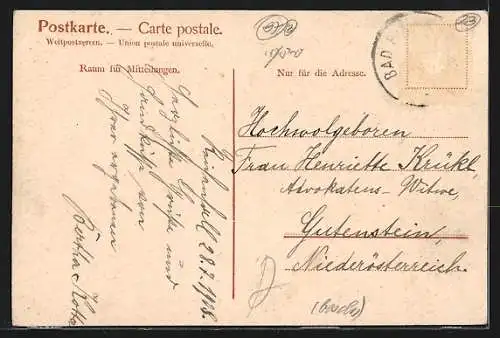 Postkarte. — Carte postale.
Weltpostverein. — Union postale universelle.
Raum für Mitteilungen.
Nur für die Adresse.
BAD
Reichenhall 28.7.1908.
Herzlichste Grüße und
Handküsse von
Ihrer ergebenen
Bertha
Hochwolgeboren
Frau Henriette Krükl,
Advokatens-Witwe,
Gutenstein,
Niederösterreich.